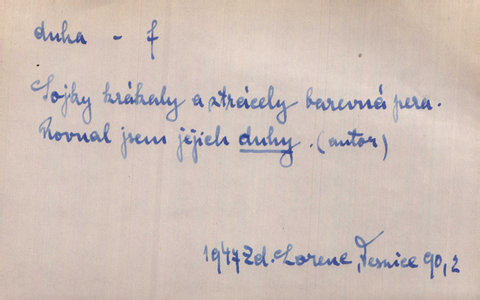 duha - f
Sojky krákaly a ztrácely barevná pera.
Rovnal jsem jejich duhy. (autor)
1947 Zd. Lorenc, Tesnice 90,2